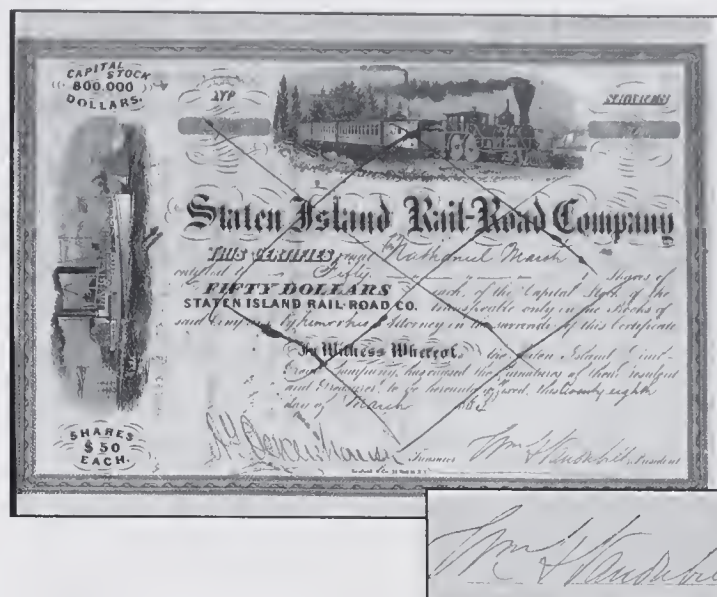 CAPITAL STOCK
800,000
DOLLARS.
Staten Island Rail-Road Company
THIS CERTIFIES that Nathaniel Marsh
entitled to Fifty Shares of
FIFTY DOLLARS each, of the Capital Stock of the
STATEN ISLAND RAIL-ROAD CO. transferable only in the Books of
said Company by him or his Attorney in the surrender of this Certificate
In Witness Whereof, the Staten Island Rail-
Road Company, has caused the signatures of their President
and Treasurer, to be hereunto affixed, this twenty eighth
day of March
Treasurer Wm H Vanderbilt President
SHARES
$50
EACH.
Wm H Vanderbil